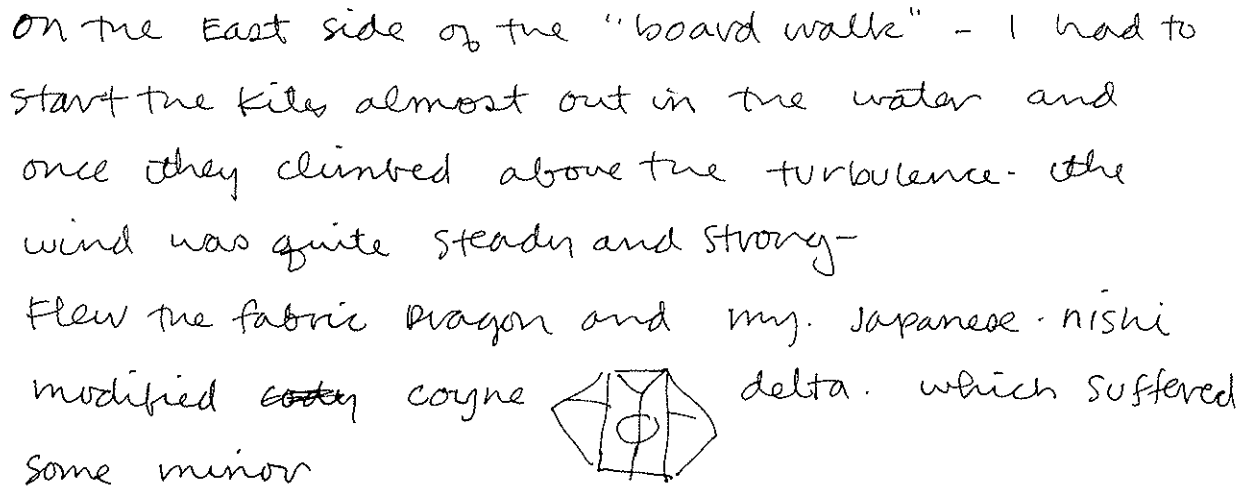 on the East side of the "board walk" - I had to
start the kites almost out in the water and
once they climbed above the turbulence - the
wind was quite steady and strong -
Flew the fabric Dragon and my. Japanese. nishi
modified coyne delta. which suffered
some minor